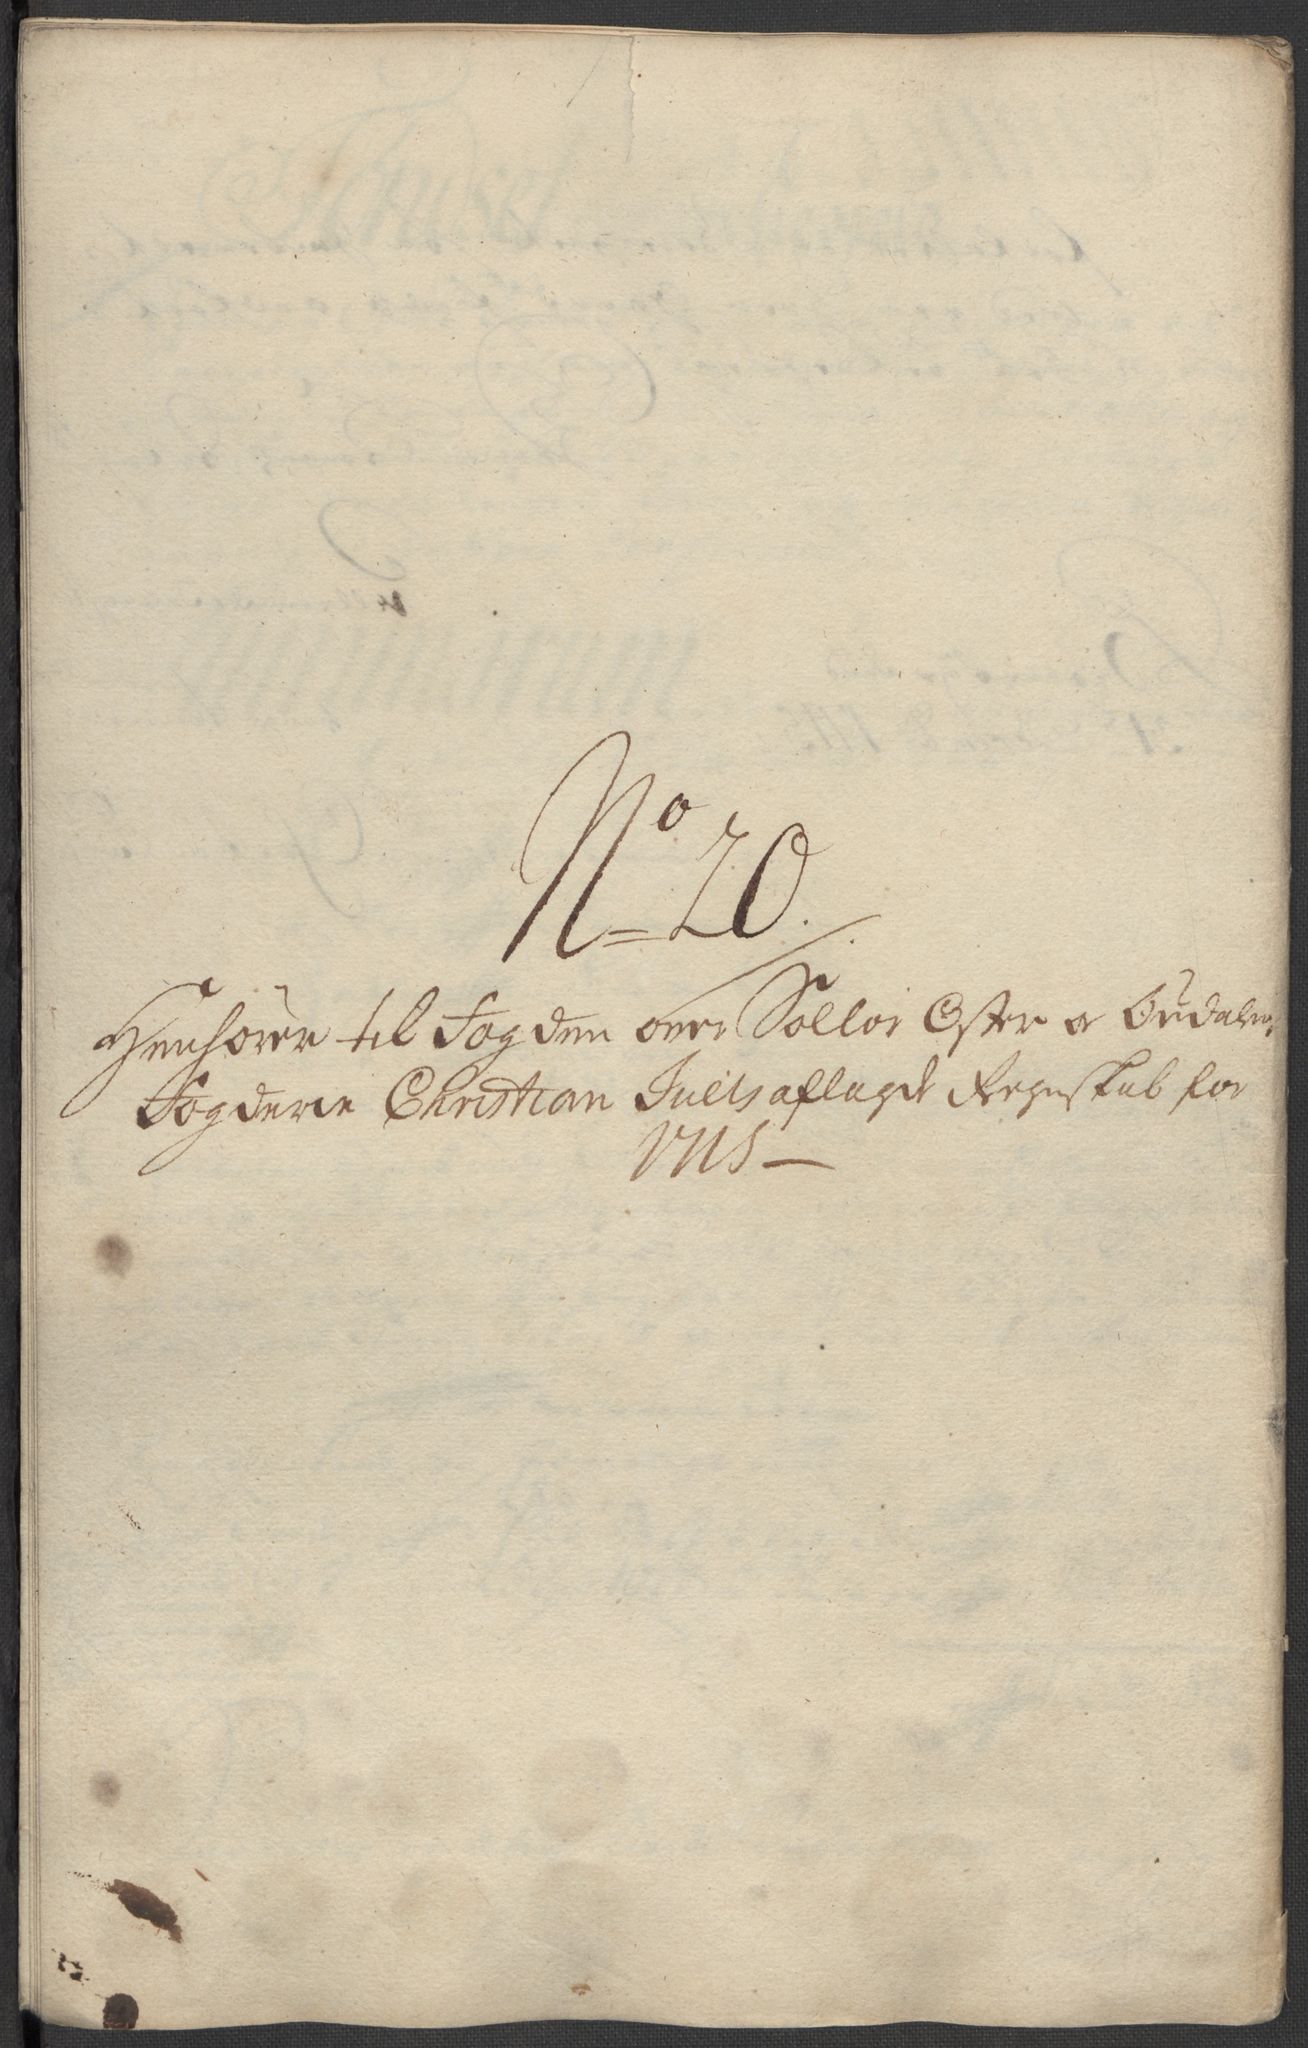 No 20.
Henhörer til Fogden over Sollör Öster o Oudalens
Fogderie Christian Juels aflagde Regnskab for
1715 —